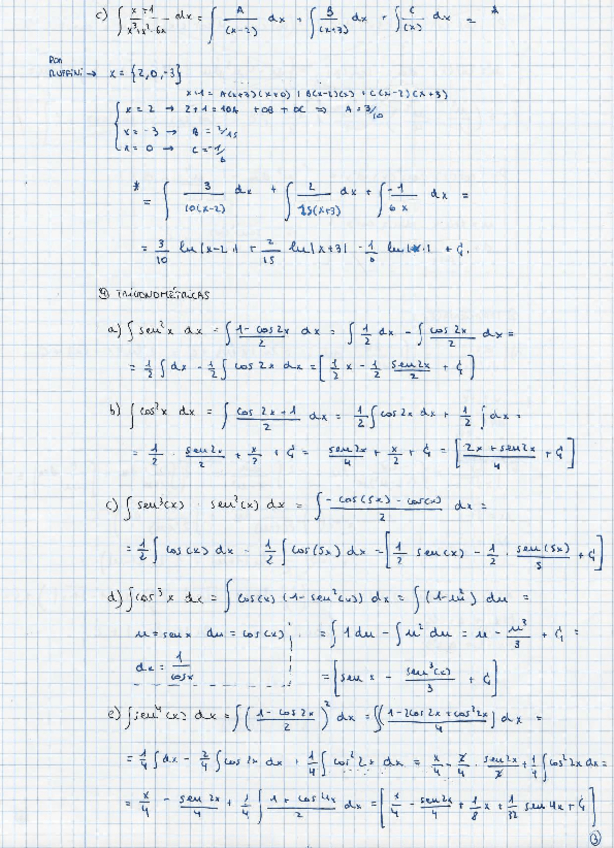 c) ∫ x+1 / x³+x²-6x dx = ∫ A/(x-2) dx + ∫ B/(x+3) dx + ∫ C/(x) dx = *
POR
RUFFINI → x = {2,0,-3}
x+1 = A(x+3)(x+0) + B(x-2)(x) + C(x-2)(x+3)
x = 2 → 2+1 = 10A + 0B + 0C ⇒ A = 3/10
x = -3 → B = 2/15
x = 0 → C = -1/6
* = ∫ 3/10(x-2) dx + ∫ 2/15(x+3) dx + ∫ -1/6x dx =
= 3/10 ln|x-2| + 2/15 ln|x+3| - 1/6 ln|x| + C.
9) TRIGONOMÉTRICAS
a) ∫ sen²x dx = ∫ 1-cos2x/2 dx = ∫ 1/2 dx - ∫ cos2x/2 dx =
= 1/2 ∫ dx - 1/2 ∫ cos 2x dx = [1/2 x - 1/2 sen2x/2 + C]
b) ∫ cos²x dx = ∫ cos 2x+1/2 dx = 1/2 ∫ cos2x dx + 1/2 ∫ dx =
= 1/2 · sen2x/2 + x/2 + C = sen2x/4 + x/2 + C = [2x + sen2x/4 + C]
c) ∫ sen³(x) · sen²(x) dx = ∫ -cos(5x) - cos(x)/2 dx =
= 1/2 ∫ cos(x) dx - 1/2 ∫ cos(5x) dx = [1/2 sen(x) - 1/2 · sen(5x)/5 + C]
d) ∫ cos³x dx = ∫ cos(x) (1-sen²(x)) dx = ∫ (1-u²) du =
u = sen x du = cos(x) = ∫ 1 du - ∫ u² du = u - u³/3 + C =
dx = 1/cosx = [sen x - sen³(x)/3 + C]
e) ∫ sen⁴(x) dx = ∫ (1-cos2x/2)² dx = ∫ (1-2cos2x+cos²2x/4) dx =
= 1/4 ∫ dx - 2/4 ∫ cos 2x dx + 1/4 ∫ cos²2x dx = x/4 - 2/4 · sen2x/2 + 1/4 ∫ cos²2x dx =
= x/4 - sen 2x/4 + 1/4 ∫ 1 + cos4x/2 dx = [x/4 - sen2x/4 + 1/8 x + 1/32 sen 4x + C]
③